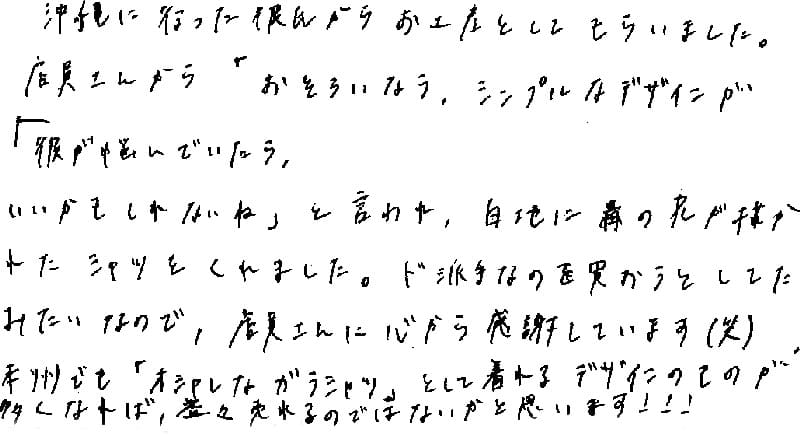 沖縄に行った彼氏からお土産としてもらいました。
店員さんから「おそろいなら、シンプルなデザインが
「彼が悩んでいたら、
いいかもしれないね」と言われ、白地に藍の花が描か
れたシャツをくれました。ド派手なのを買おうとしてた
みたいなので、店員さんに心から感謝しています(笑)
本州でも「オシャレなガラシャツ」として着れるデザインのものが
多くなれば、益々売れるのではないかと思います!!!